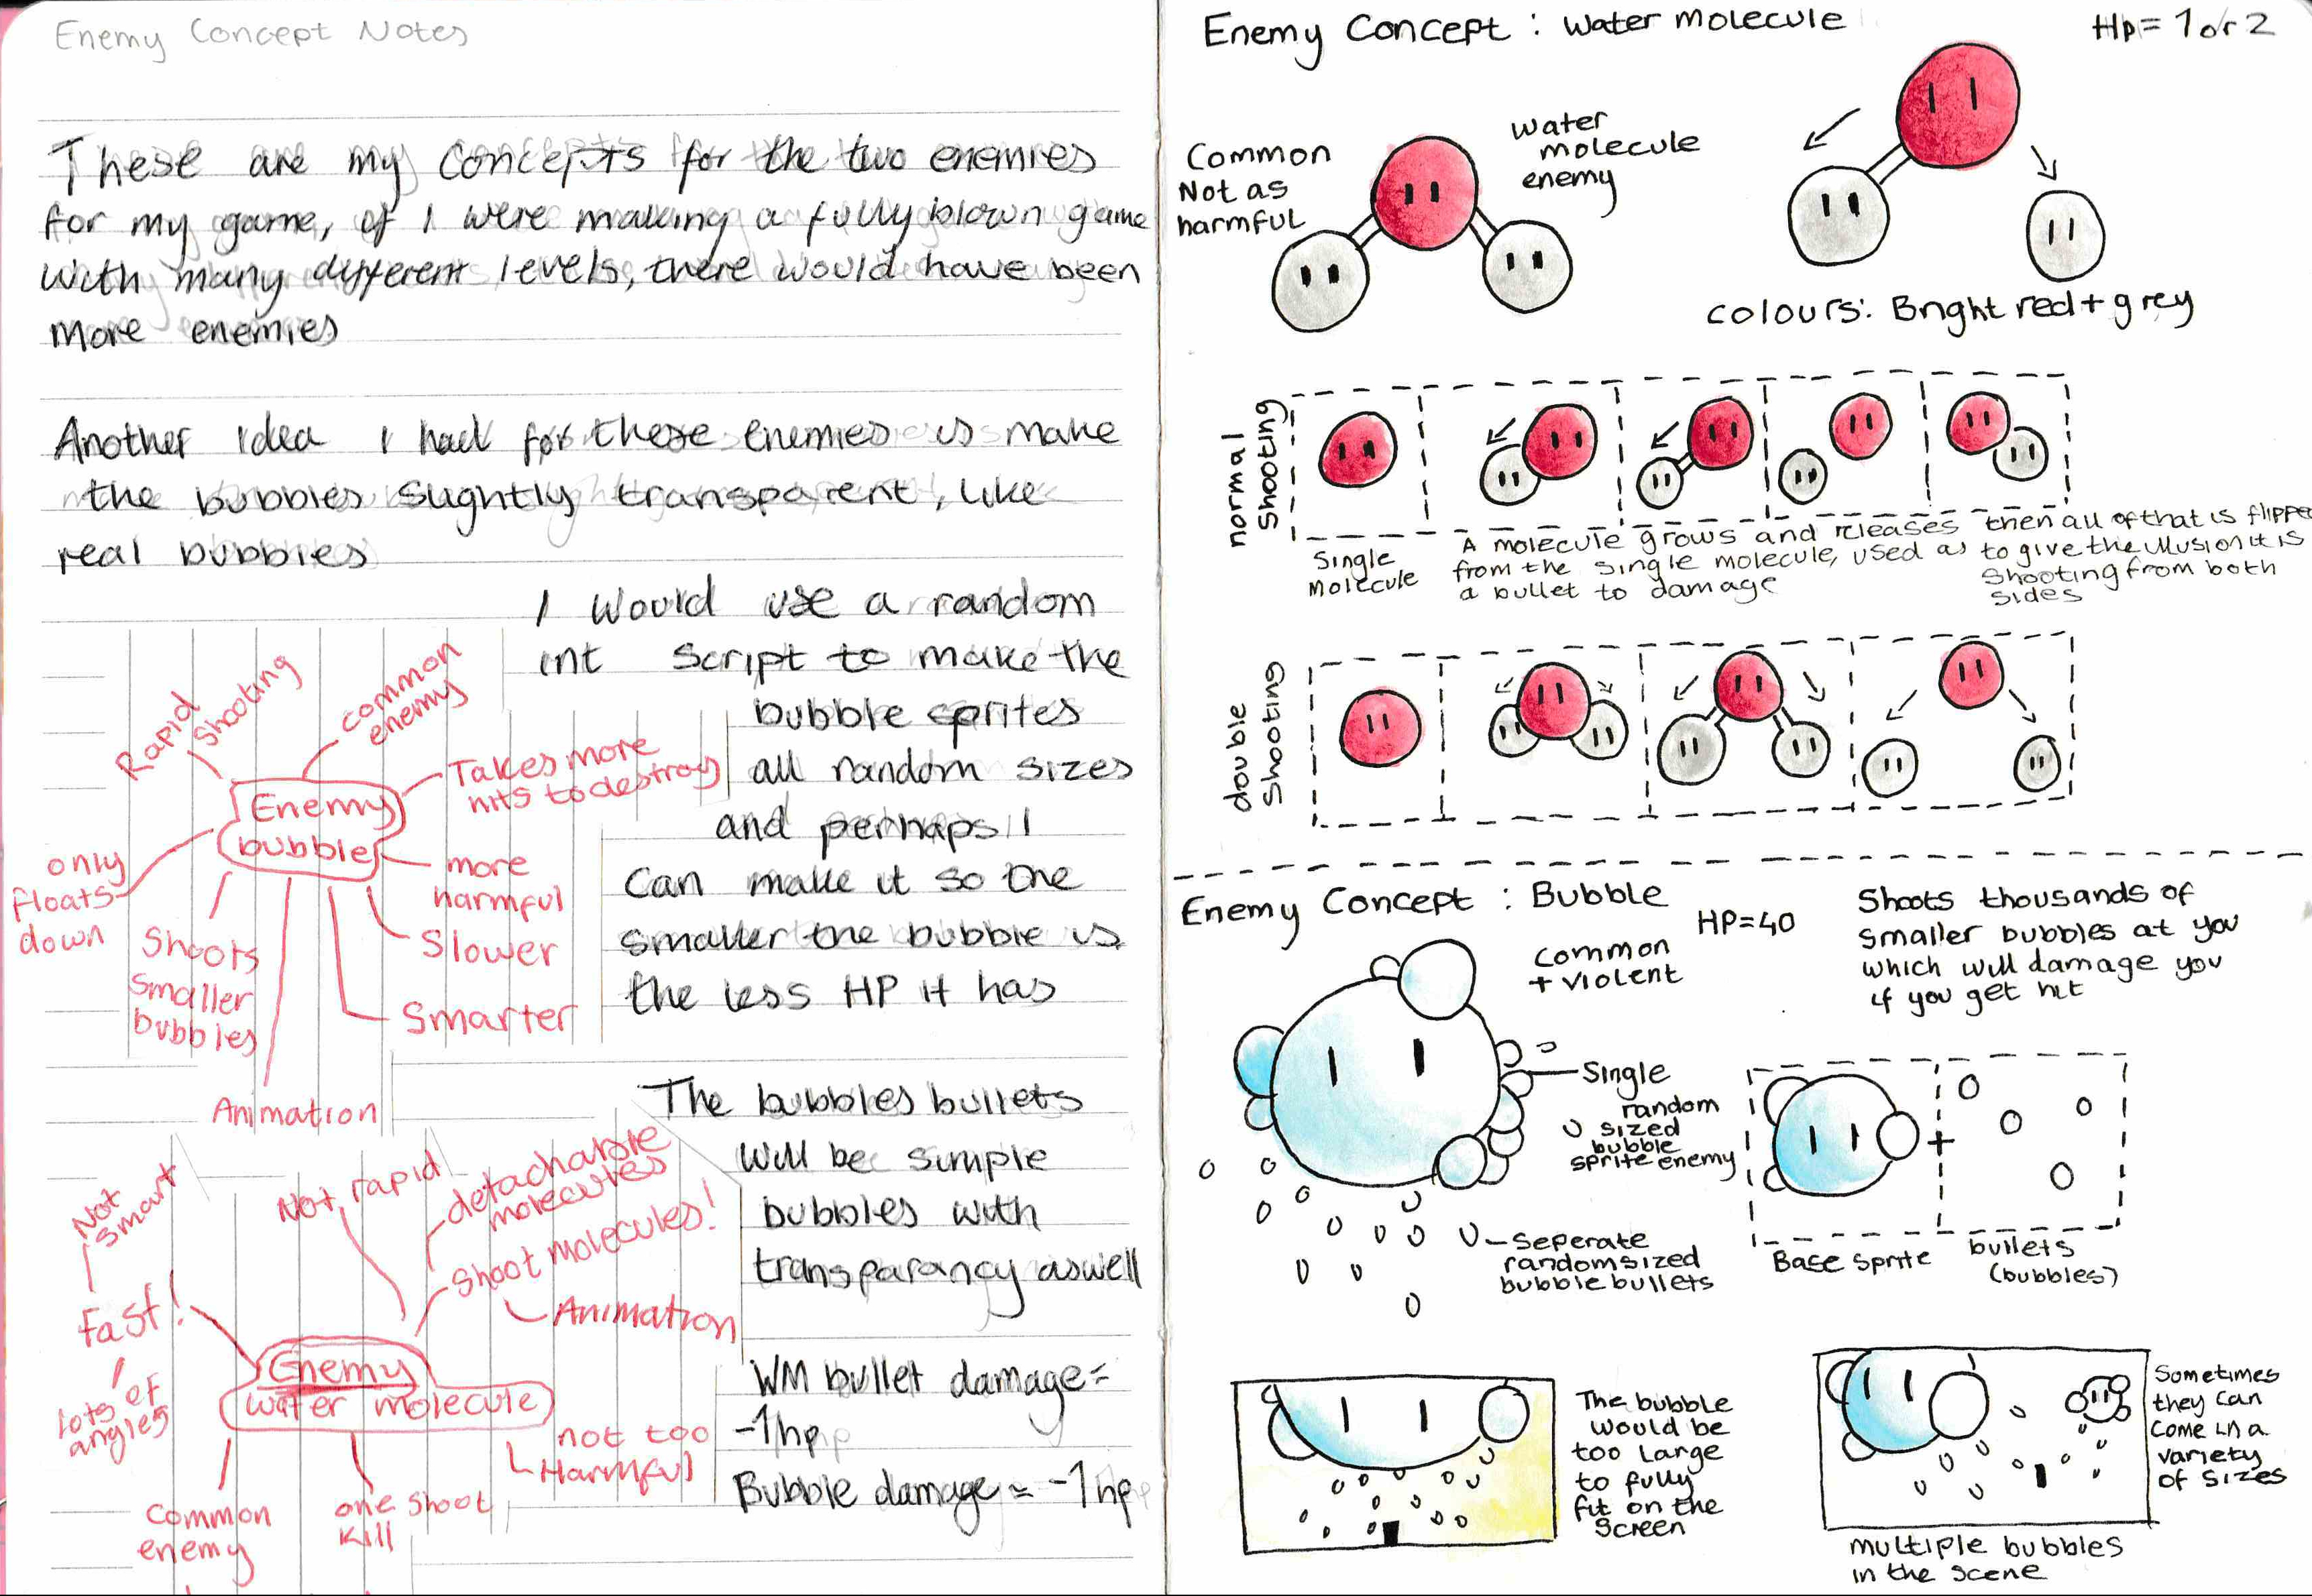 Enemy Concept Notes
These are my concepts for the two enemies
for my game, if I were making a fully blown game
with many different levels, there would have been
more enemies
Another idea I had for these enemies is make
the bubbles slightly transparent, like
real bubbles
I would use a random
int script to make the
bubble sprites
all random sizes
and perhaps I
can make it so the
smaller the bubble is
the less HP it has
Rapid
shooting
common
enemy
Takes more
hits to destroy
Enemy
bubble
only
floats
down
more
harmful
Slower
Smarter
Shoots
smaller
bubbles
Animation
The bubbles bullets
will be simple
bubbles with
transparancy aswell
Not
smart
Not rapid
detachable
molecules
Shoot molecules!
Animation
Fast!
lots of
angles
Enemy
water molecule
not too
Harmful
Common
enemy
one shoot
kill
WM bullet damage=
-1hp
Bubble damage = -1hp
Enemy Concept : water molecule
Hp= 1 or 2
Common
Not as
harmful
water
molecule
enemy
colours: Bright red + grey
normal
shooting
Single
molecule
A molecule grows and releases
from the single molecule, used as
a bullet to damage
then all of that is flipped
to give the illusion it is
shooting from both
sides
double
shooting
Enemy Concept : Bubble
HP=40
common
+ violent
Shoots thousands of
smaller bubbles at you
which will damage you
if you get hit
Single
random
sized
bubble
sprite enemy
+
Base sprite
bullets
(bubbles)
seperate
random sized
bubble bullets
The bubble
would be
too large
to fully
fit on the
screen
Sometimes
they can
come in a
variety
of sizes
multiple bubbles
in the scene